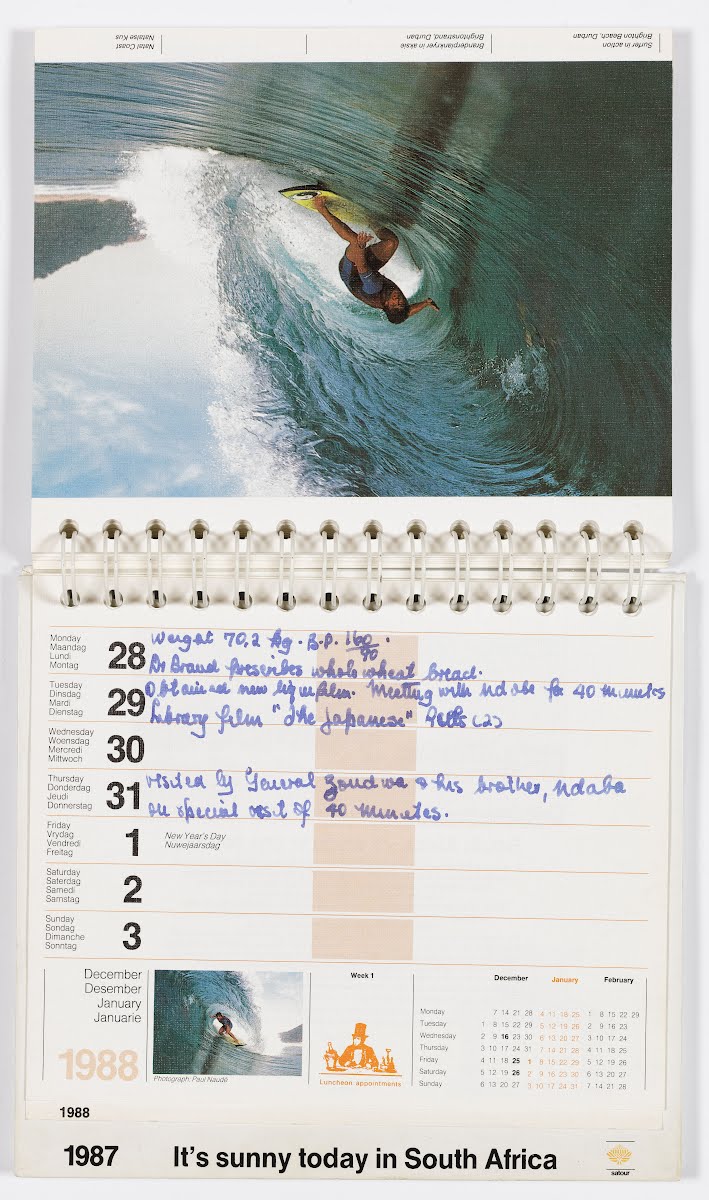 Surfer in action
Brighton Beach, Durban
Branderplankryer in aksie
Brightonstrand, Durban
Natal Coast
Natalse Kus
Monday
Maandag
Lundi
Montag
28
Weight 70,2 kg. B.P. 160/90.
Dr Brand prescribes whole wheat bread.
Tuesday
Dinsdag
Mardi
Dienstag
29
Obtained new Meeting with Ndabe for 40 minutes
Library film "The Japanese" (2)
Wednesday
Woensdag
Mercredi
Mittwoch
30
Thursday
Donderdag
Jeudi
Donnerstag
31
Visited by General Zondwa & his brother, Ndaba
on special visit of 40 minutes.
Friday
Vrydag
Vendredi
Freitag
1
New Year's Day
Nuwejaarsdag
Saturday
Saterdag
Samedi
Samstag
2
Sunday
Sondag
Dimanche
Sonntag
3
December
Desember
January
Januarie
1988
Photograph: Paul Naudé
Week 1
Luncheon appointments
December January February
Monday 7 14 21 28 4 11 18 25 1 8 15 22 29
Tuesday 1 8 15 22 29 5 12 19 26 2 9 16 23
Wednesday 2 9 16 23 30 6 13 20 27 3 10 17 24
Thursday 3 10 17 24 31 7 14 21 28 4 11 18 25
Friday 4 11 18 25 1 8 15 22 29 5 12 19 26
Saturday 5 12 19 26 2 9 16 23 30 6 13 20 27
Sunday 6 13 20 27 3 10 17 24 31 7 14 21 28
1988
1987 It's sunny today in South Africa
satour